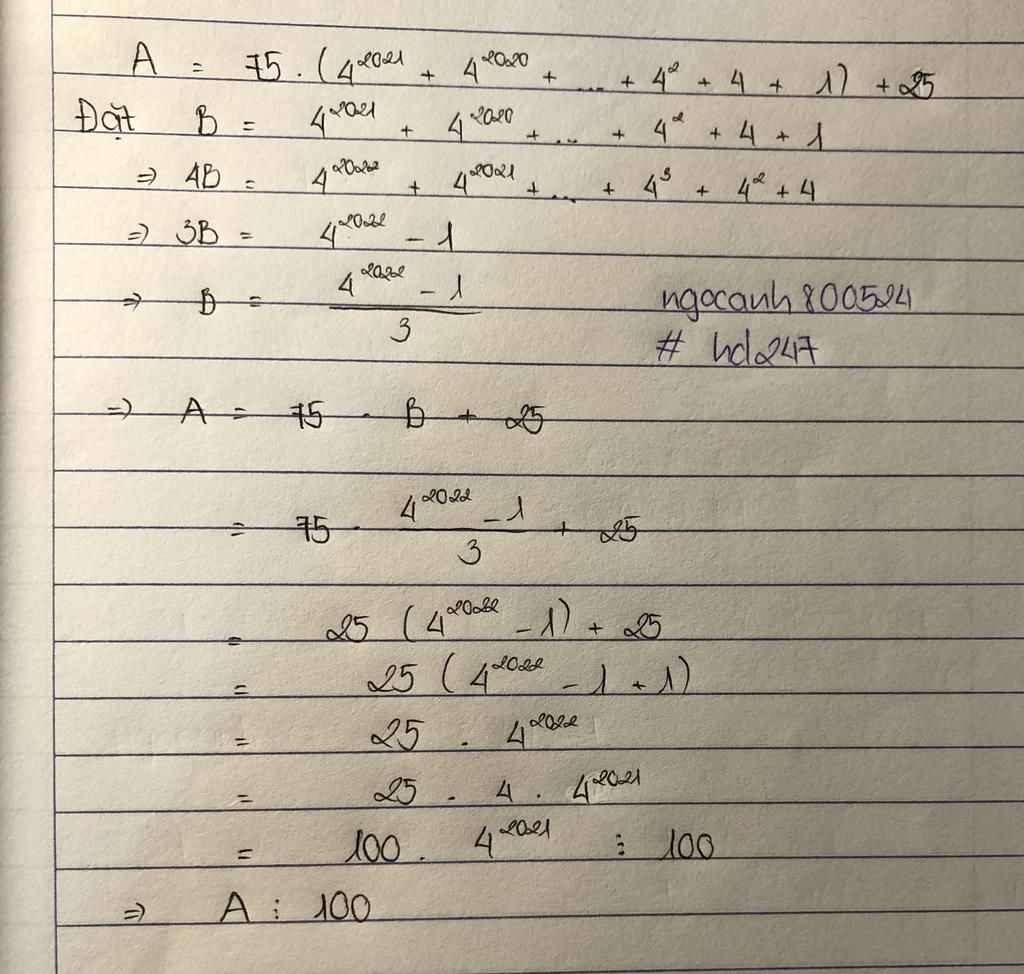 A = 75 . (4^2021 + 4^2020 + ... + 4^2 + 4 + 1) + 25
Đặt B = 4^2021 + 4^2020 + ... + 4^2 + 4 + 1
⇒ 4B = 4^2022 + 4^2021 + ... + 4^3 + 4^2 + 4
⇒ 3B = 4^2022 - 1
⇒ B = (4^2022 - 1)/3
ngocanh800524
# hd247
⇒ A = 75 . B + 25
= 75 . (4^2022 - 1)/3 + 25
= 25 (4^2022 - 1) + 25
= 25 (4^2022 - 1 + 1)
= 25 . 4^2022
= 25 . 4 . 4^2021
= 100 . 4^2021 ⋮ 100
⇒ A ⋮ 100